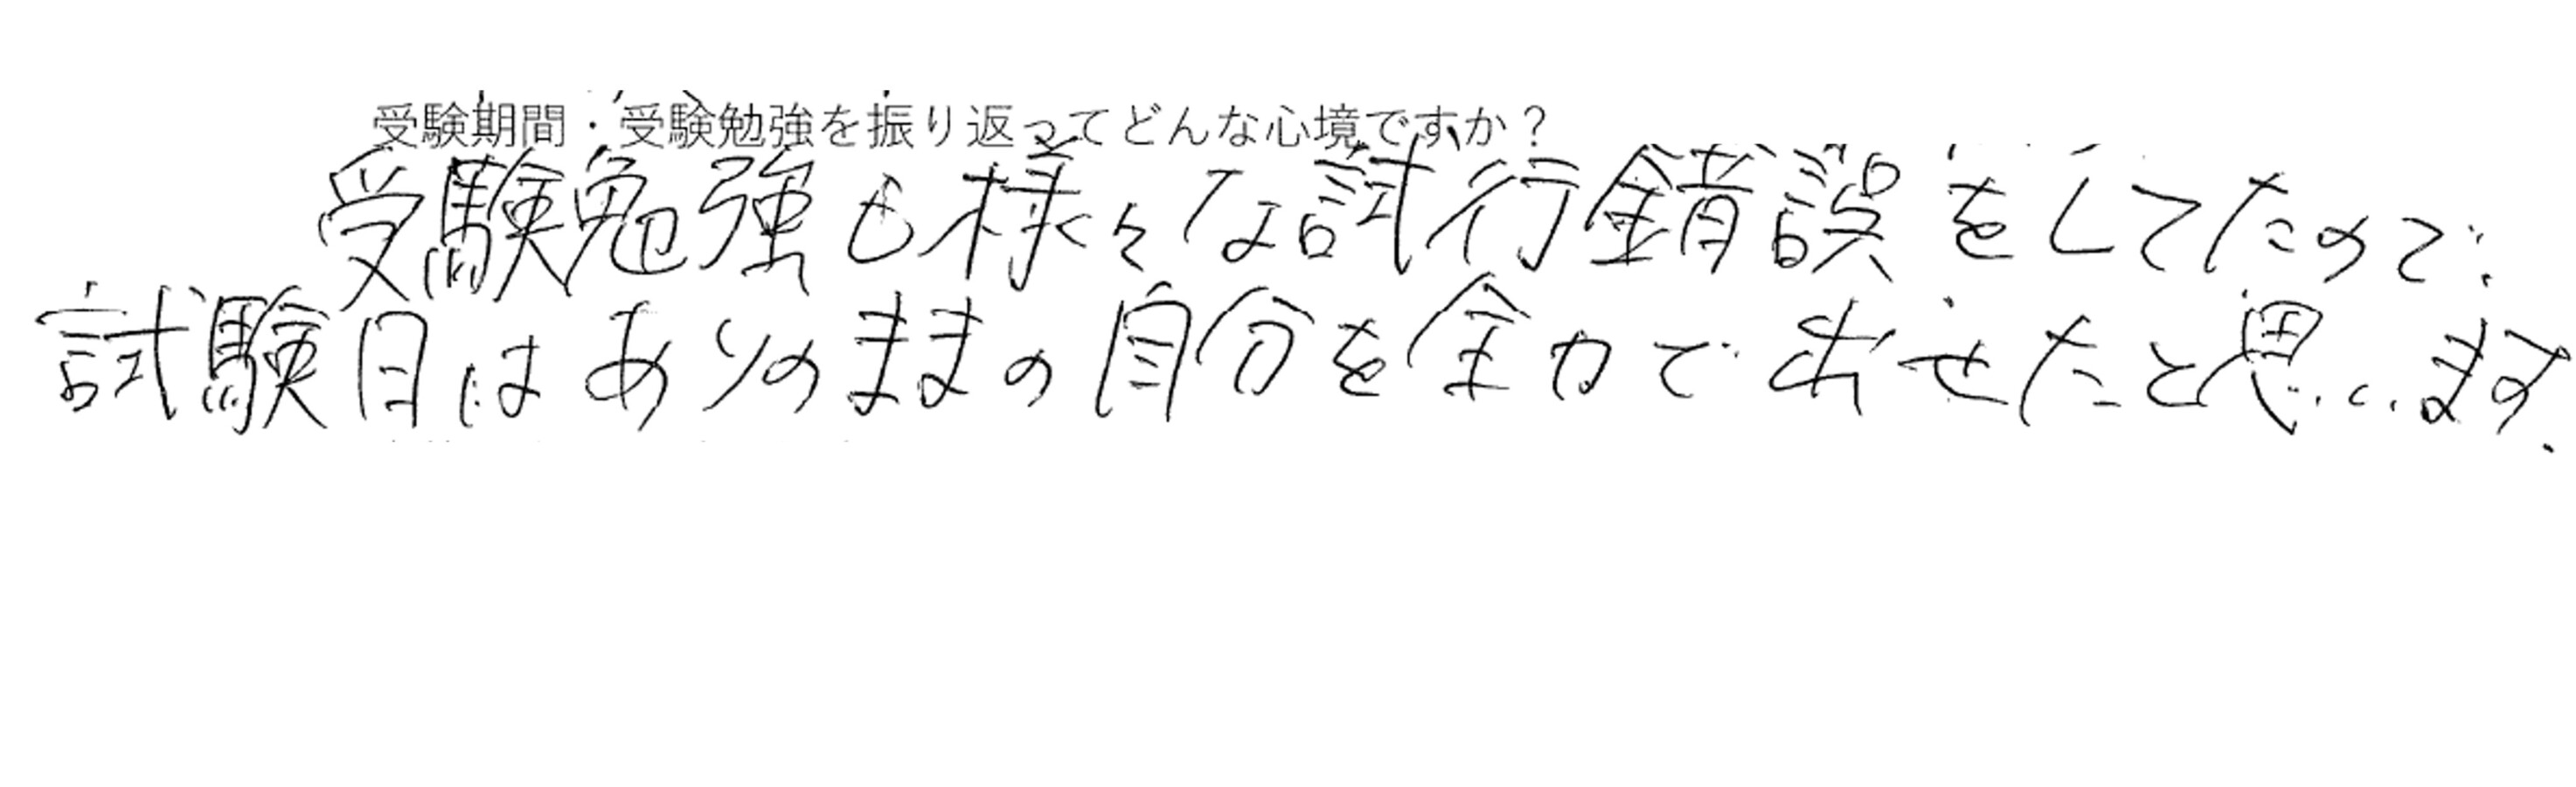 受験期間・受験勉強を振り返ってどんな心境ですか？
受験勉強も様々な試行錯誤をしてたので、
試験日はありのままの自分を全力で出せたと思います.